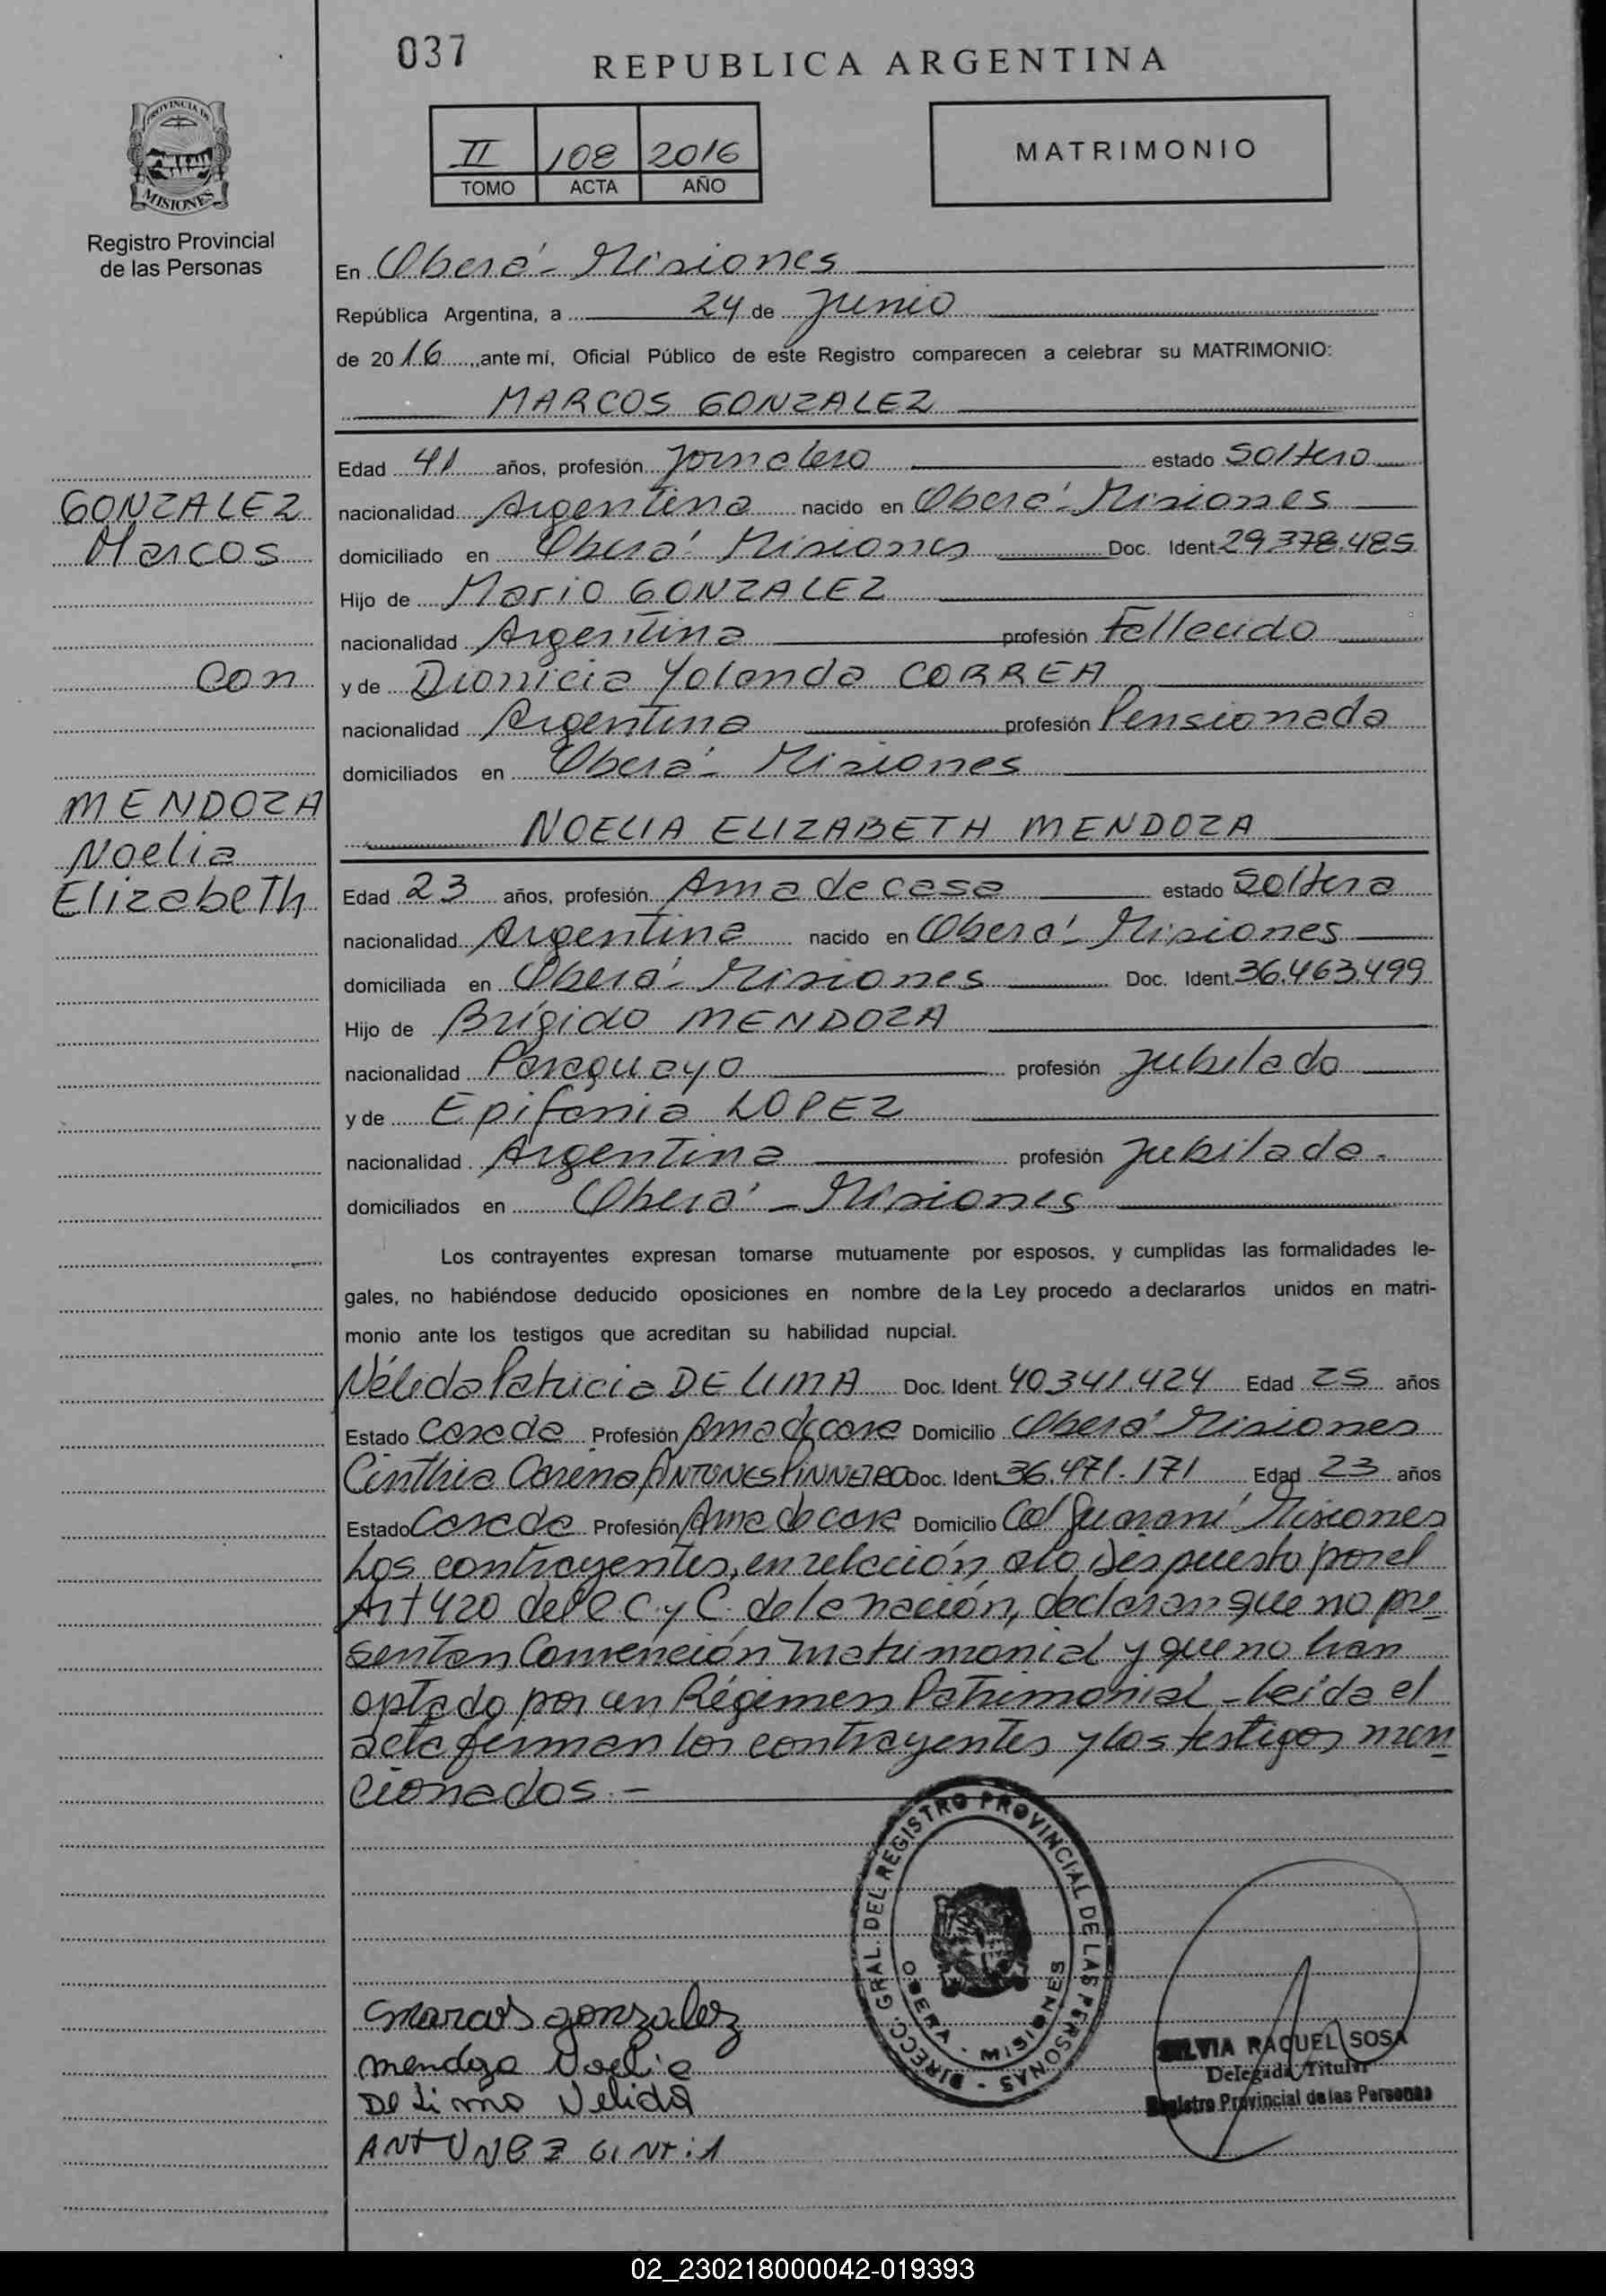 037
REPUBLICA ARGENTINA
PROVINCIA DE
MISIONES
Registro Provincial
de las Personas
II 108 2016
TOMO ACTA AÑO
MATRIMONIO
En Oberá - Misiones
República Argentina, a 24 de Junio
de 2016, ante mí, Oficial Público de este Registro comparecen a celebrar su MATRIMONIO:
MARCOS GONZALEZ
GONZALEZ
Marcos
con
MENDOZA
Noelia
Elizabeth
Edad 41 años, profesión Jornalero estado Soltero
nacionalidad Argentina nacido en Oberá - Misiones
domiciliado en Oberá - Misiones Doc. Ident 29.378.485
Hijo de Mario GONZALEZ
nacionalidad Argentina profesión Fallecido
y de Dionicia Yolanda CORREA
nacionalidad Argentina profesión Pensionada
domiciliados en Oberá - Misiones
NOELIA ELIZABETH MENDOZA
Edad 23 años, profesión Ama de casa estado Soltera
nacionalidad Argentina nacido en Oberá - Misiones
domiciliada en Oberá - Misiones Doc. Ident. 36.463.499
Hijo de Brígido MENDOZA
nacionalidad Paraguayo profesión Jubilado
y de Epifania LOPEZ
nacionalidad Argentina profesión Jubilada.
domiciliados en Oberá - Misiones
Los contrayentes expresan tomarse mutuamente por esposos, y cumplidas las formalidades le-
gales, no habiéndose deducido oposiciones en nombre de la Ley procedo a declararlos unidos en matri-
monio ante los testigos que acreditan su habilidad nupcial.
Nélida Patricia DE LIMA Doc. Ident. 40.341.424 Edad 25 años
Estado Casada Profesión Ama de casa Domicilio Oberá Misiones
Cinthia Carina ANTONES PINNEIRO Doc. Ident. 36.471.171 Edad 23 años
Estado Casada Profesión Ama de casa Domicilio Col Guaraní Misiones
Los contrayentes, en relación a lo dispuesto por el
Art 420 del C. C. y C. de la nación, declaran que no pre-
sentan Convención matrimonial y que no han
optado por un Régimen Patrimonial - Leída el
acta firman los contrayentes y los testigos men-
cionados. -
DIRECC. GRAL. DEL REGISTRO PROVINCIAL DE LAS PERSONAS -
OBERA - MISIONES
marcos gonzalez
mendoza Noelia
De Lima Nelida
ANTUNEZ CINTIA
SILVIA RAQUEL SOSA
Delegada Titular
Registro Provincial de las Personas
02_230218000042-019393